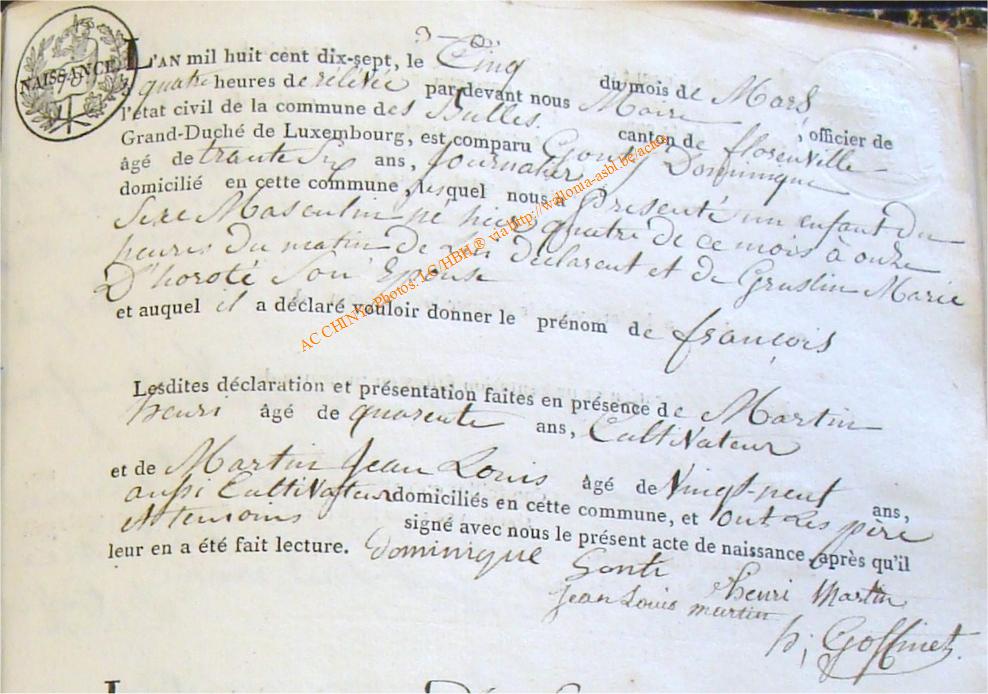 3
NAISSANCE
75
L'AN mil huit cent dix-sept, le Cinq du mois de Mars
quatre heures de relevée par devant nous Maire, officier de
l'état civil de la commune des Bulles. canton de florenville
Grand-Duché de Luxembourg, est comparu Gonty Dominique
âgé de trante Six ans, Journalier
domicilié en cette commune, lesquel nous a présenté un enfant du
Sexe Masculin né hier quatre de ce mois à onze
heures du matin de lui déclarent et de Gruslin Marie
D'horoté Son Epouse
et auquel il a déclaré vouloir donner le prénom de françois
Lesdites déclaration et présentation faites en présence de Martin
henri âgé de quarente ans, CultiVateur
et de Martin Jean Louis âgé de Vingt-neuf ans,
aussi CultiVateur domiciliés en cette commune, et ont les père
et temoins signé avec nous le présent acte de naissance, après qu'il
leur en a été fait lecture. Dominique Gonti
henri Martin
Jean Louis martin
h; Goffinet
AC CHINY - Photos: LG/HBH ® via http://walloma-asbl.be/actes